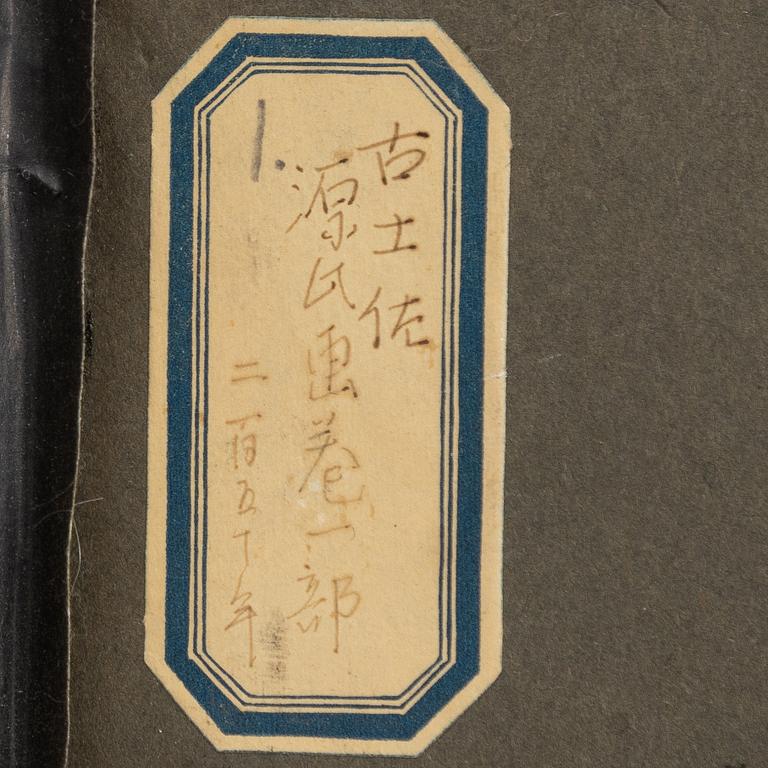 古土佐
源氏画巻一部
二百五十年
1.